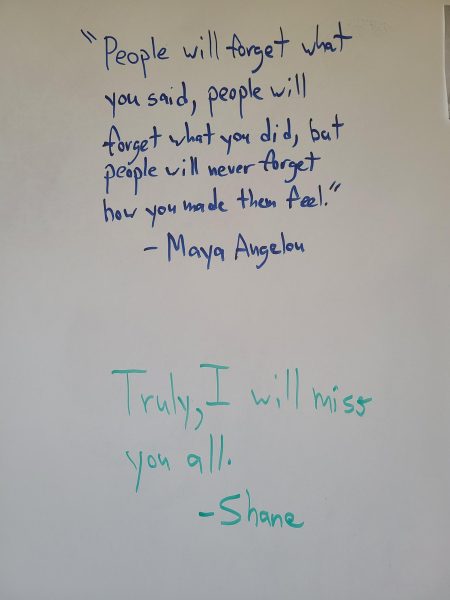 "People will forget what
you said, people will
forget what you did, but
people will never forget
how you made them feel."
- Maya Angelou
Truly, I will miss
you all.
- Shane